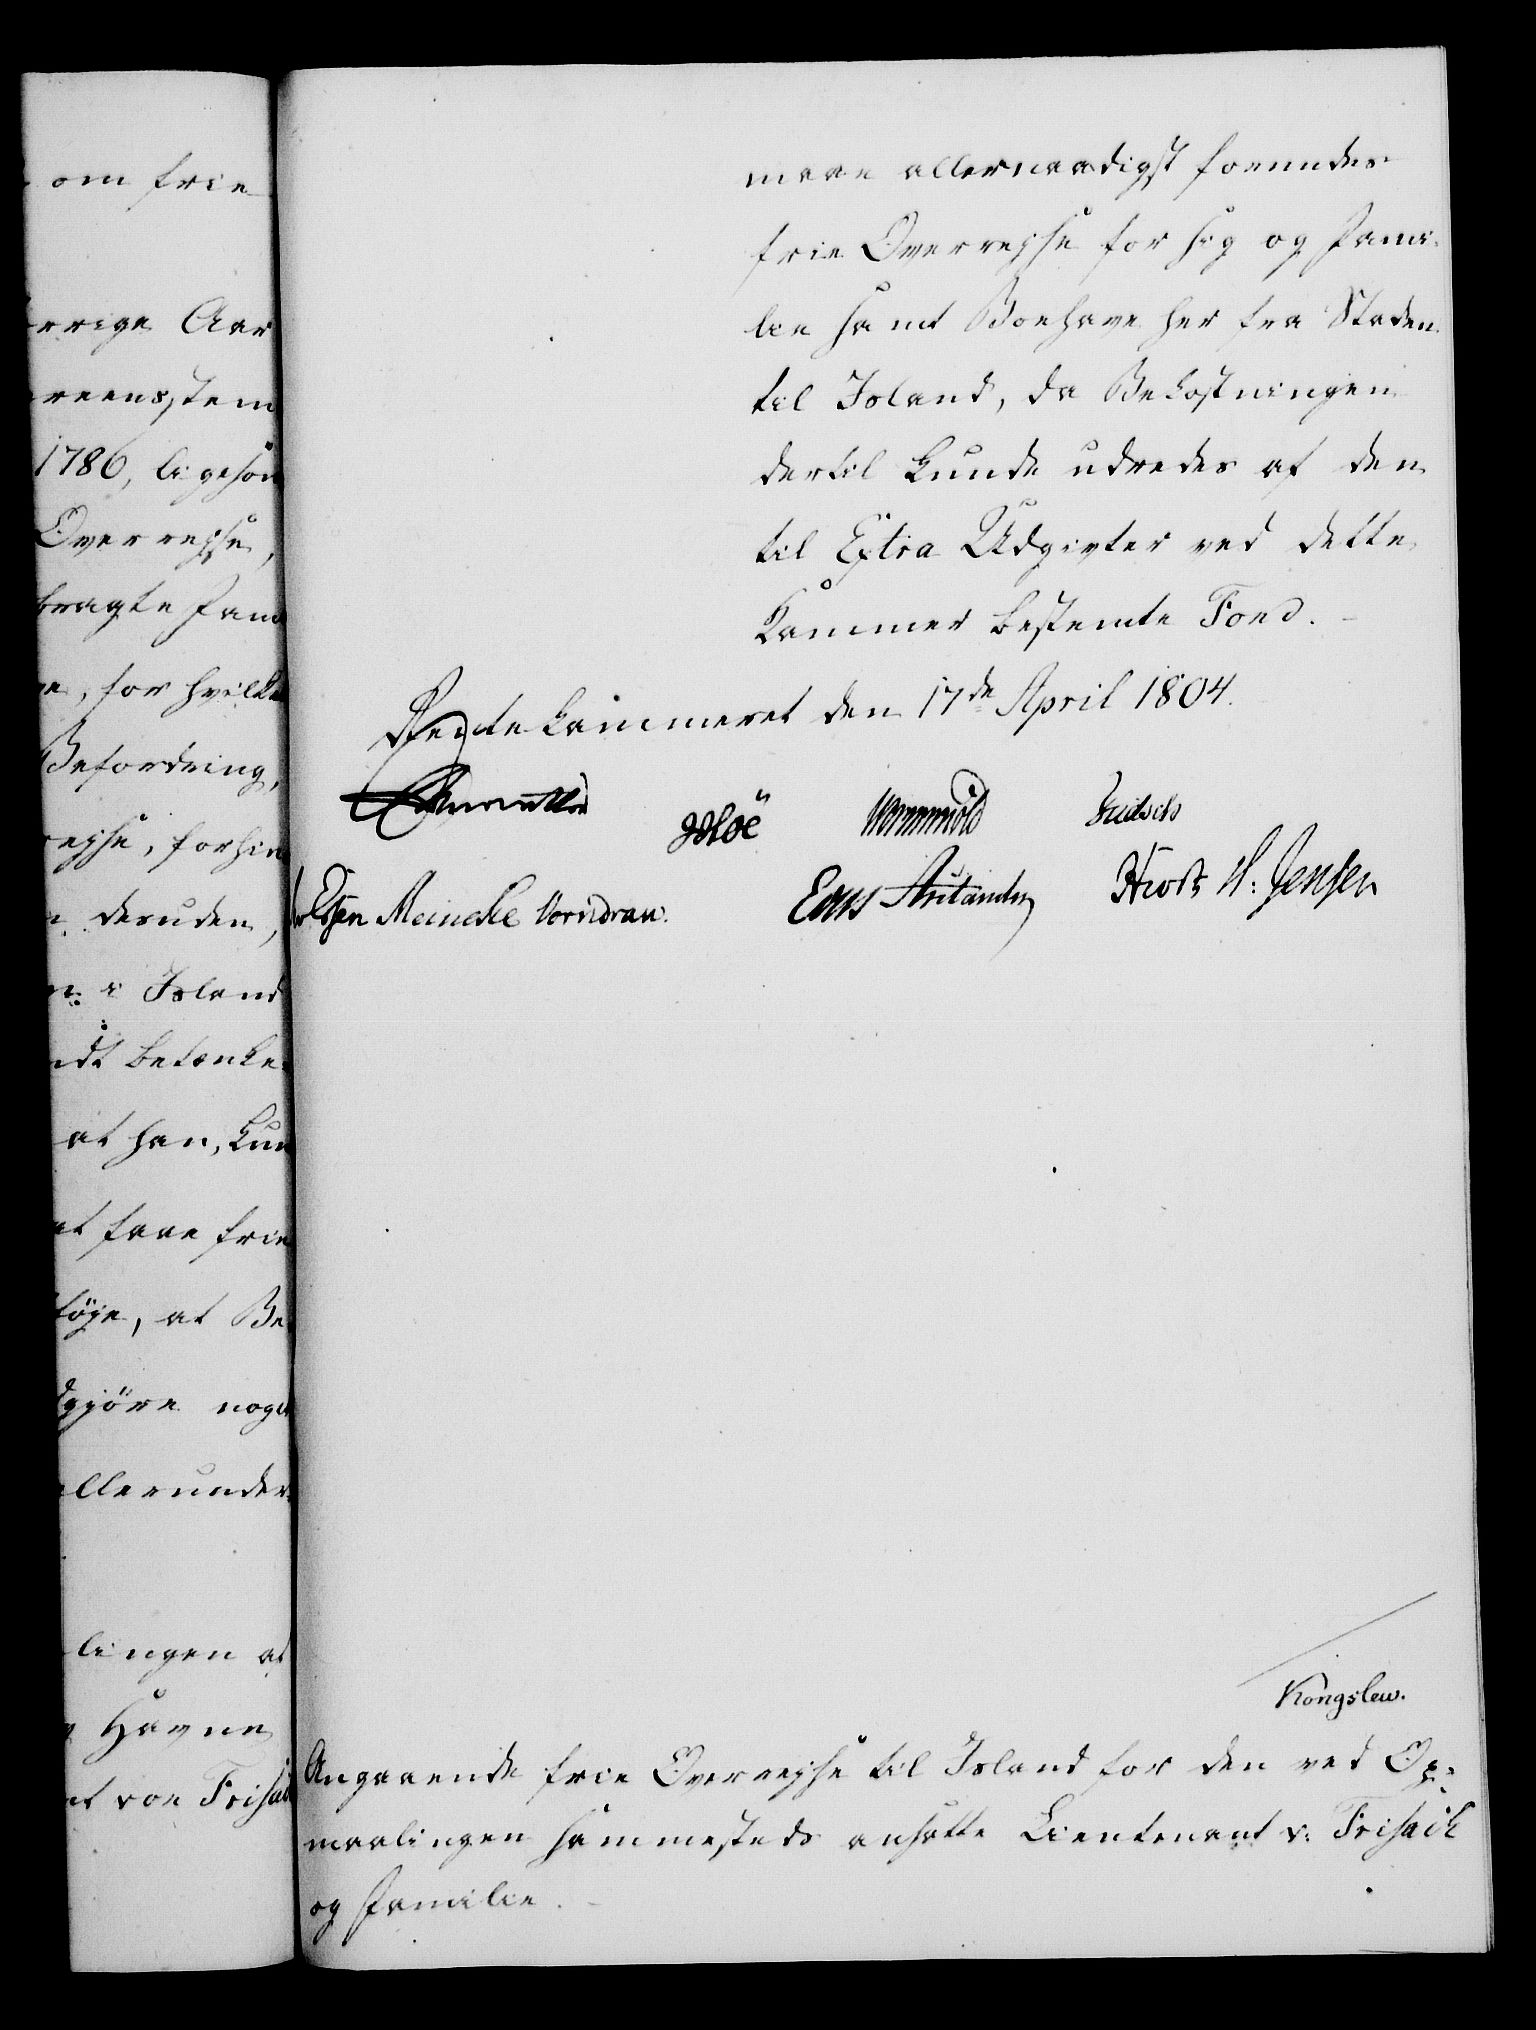 om frie
rrige Aar
reensstem
1786, ligesom
Overrejse,
bragte Fam
for hvilke
Befordring,
rejse, forhin
desuden,
i Island
idt betænke
at han, kun
at faae frie
føje, at Be
gjöre noget
allerunder
lingen af
Havne
nt von Frisak
maae allernaadigst forundes
frie Overrejse for sig og Fami-
lie samt Boehave her fra Staden
til Island, da Bekostningen
dertil kunde udredes af den
til Extra Udgivter ved dette
Kammer bestemte Fond.
Rentekammeret den 17de April 1804.
Wormskiold
Meincke Vorndran.
Hiort H: Jensen
Kongslew.
Angaaende frie Overrejse til Island for den ved Op-
maalingen sammesteds ansatte Lieutenant v: Frisack
og Familie.